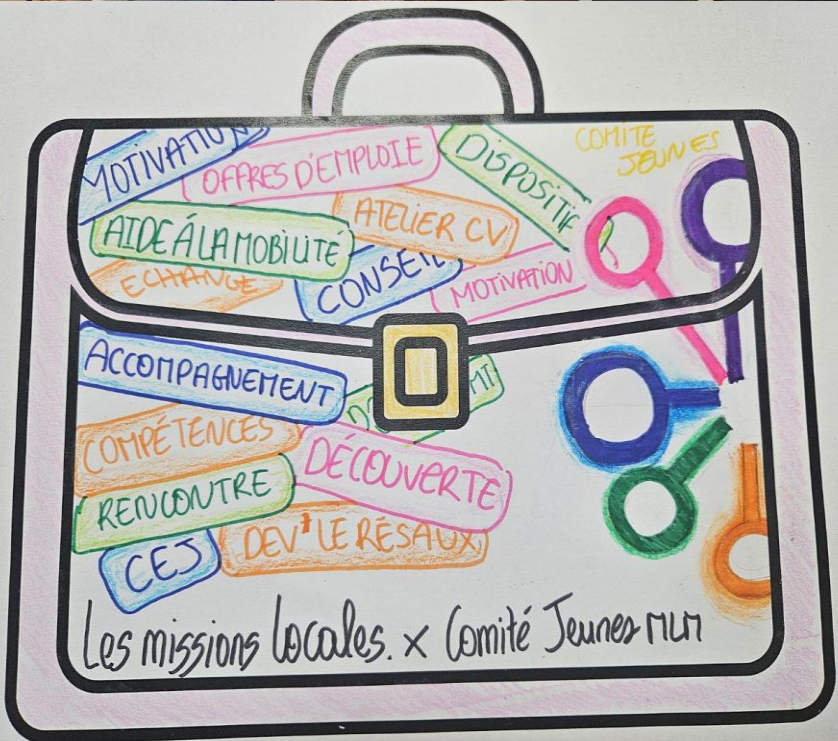 MOTIVATION
OFFRES D'EMPLOIE
DISPOSITIF
COMITE
JEUNES
AIDE À LA MOBILITÉ
ATELIER CV
ECHANGE
CONSEIL
MOTIVATION
ACCOMPAGNEMENT
COMPÉTENCES
DÉCOUVERTE
RENCONTRE
CEJ
DEV' LE RÉSAUX
Les missions Locales. x Comité Jeunes MLM